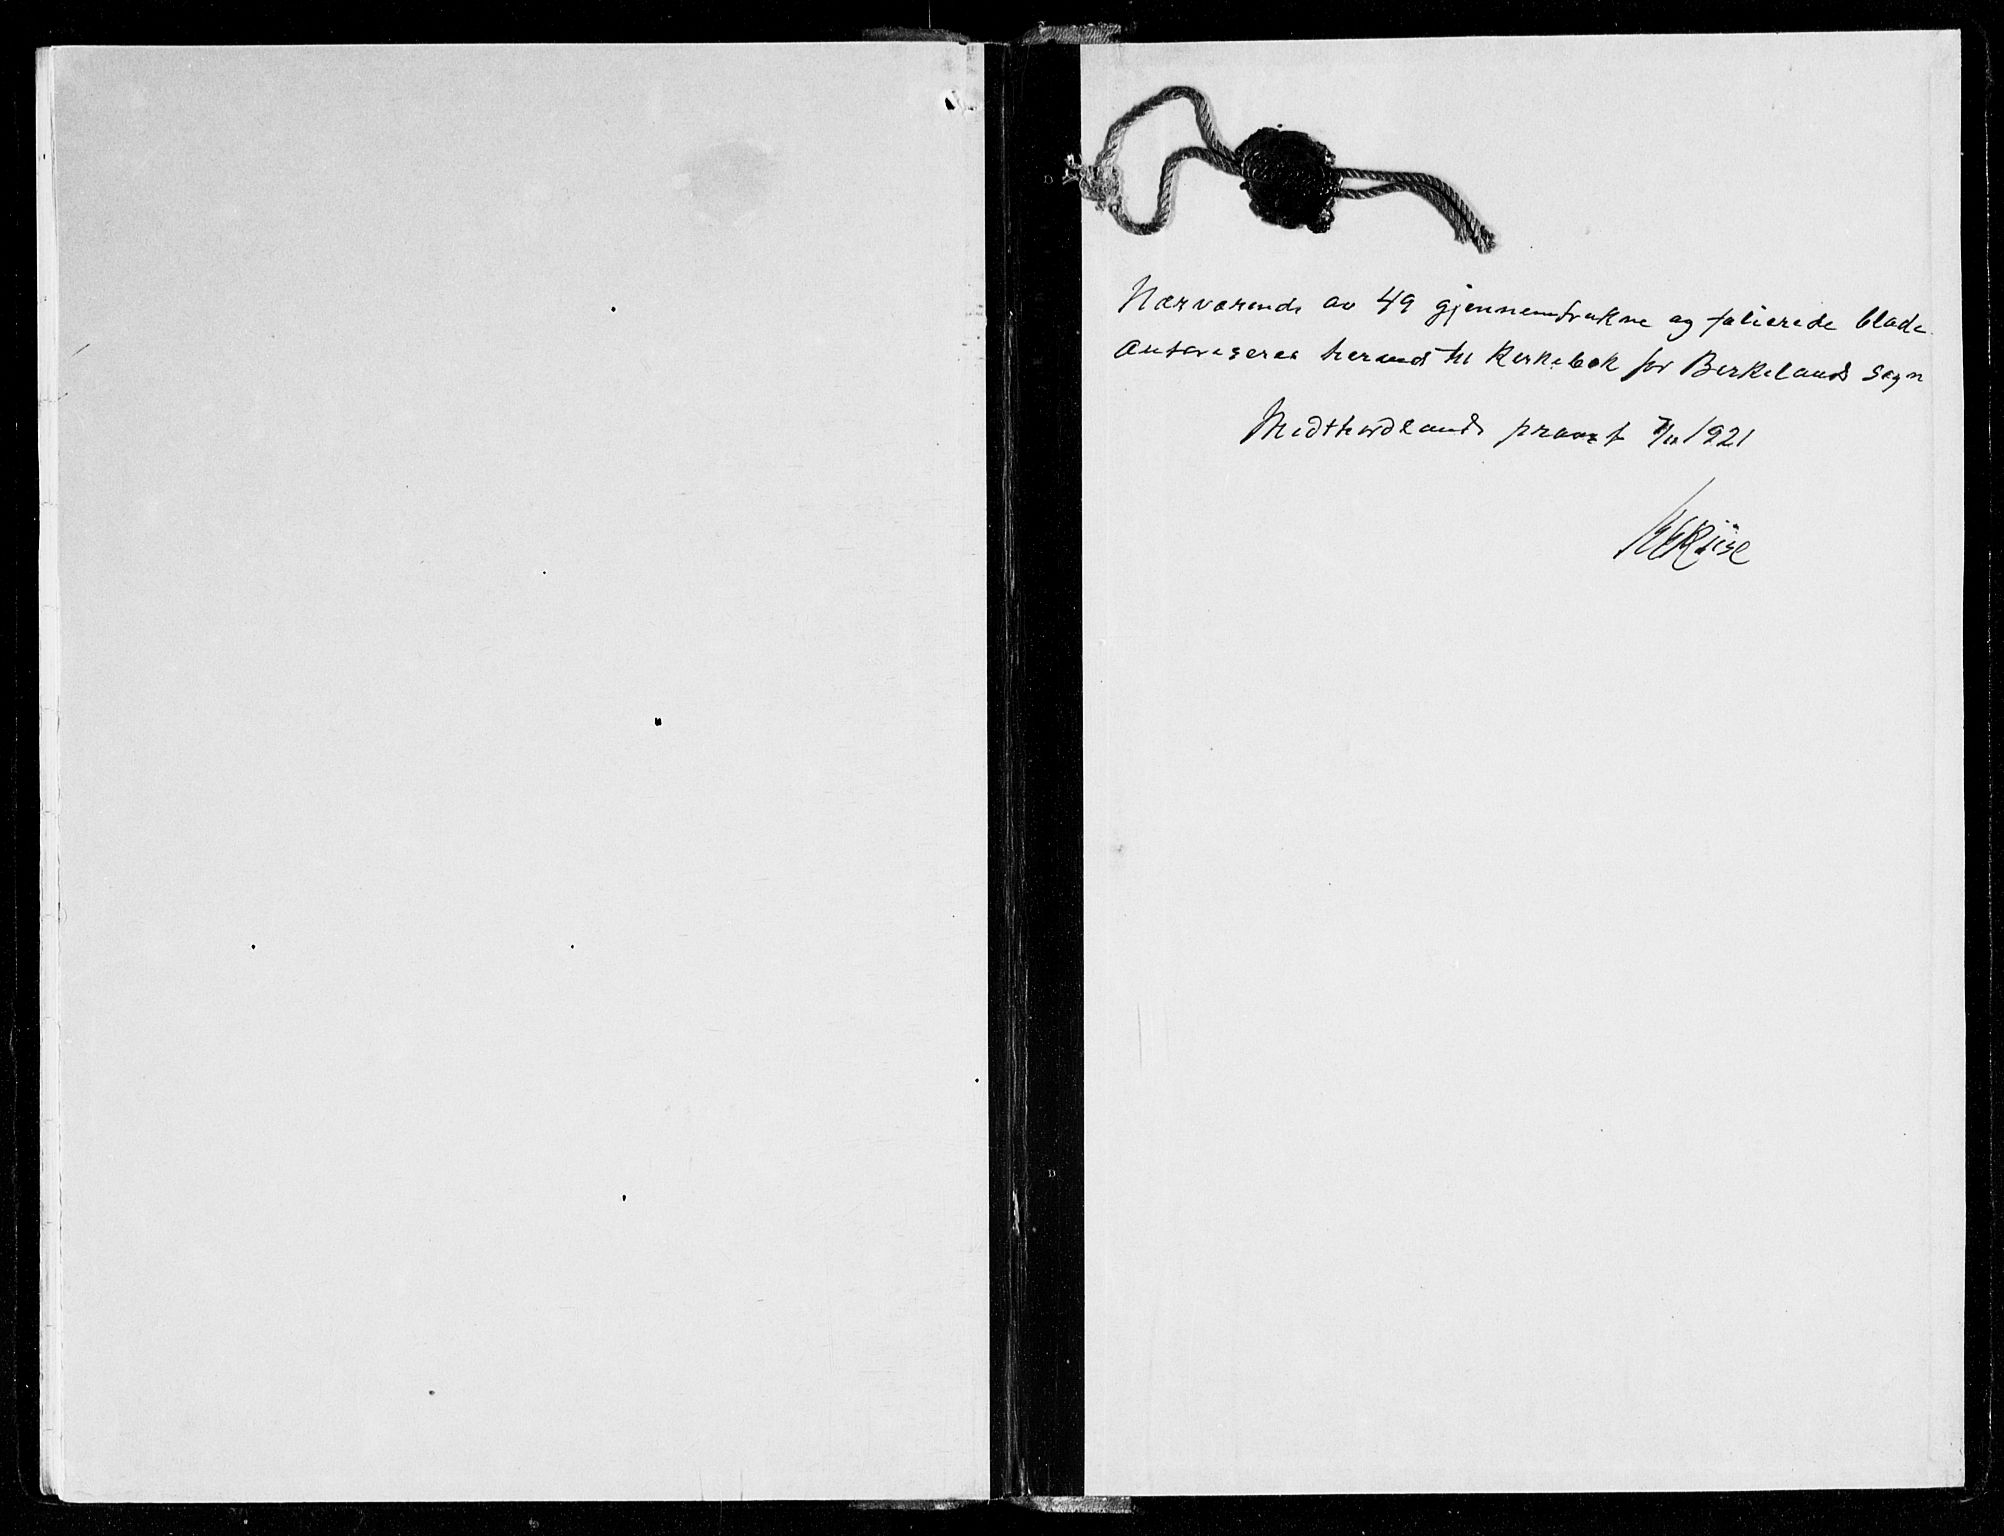 Nærværende av 49 gjennemtrukne og folierede blade
autoriseres herved til Kirkebok for Birkelands sogn
Midthordlands prosti 7/11 1921
Riise